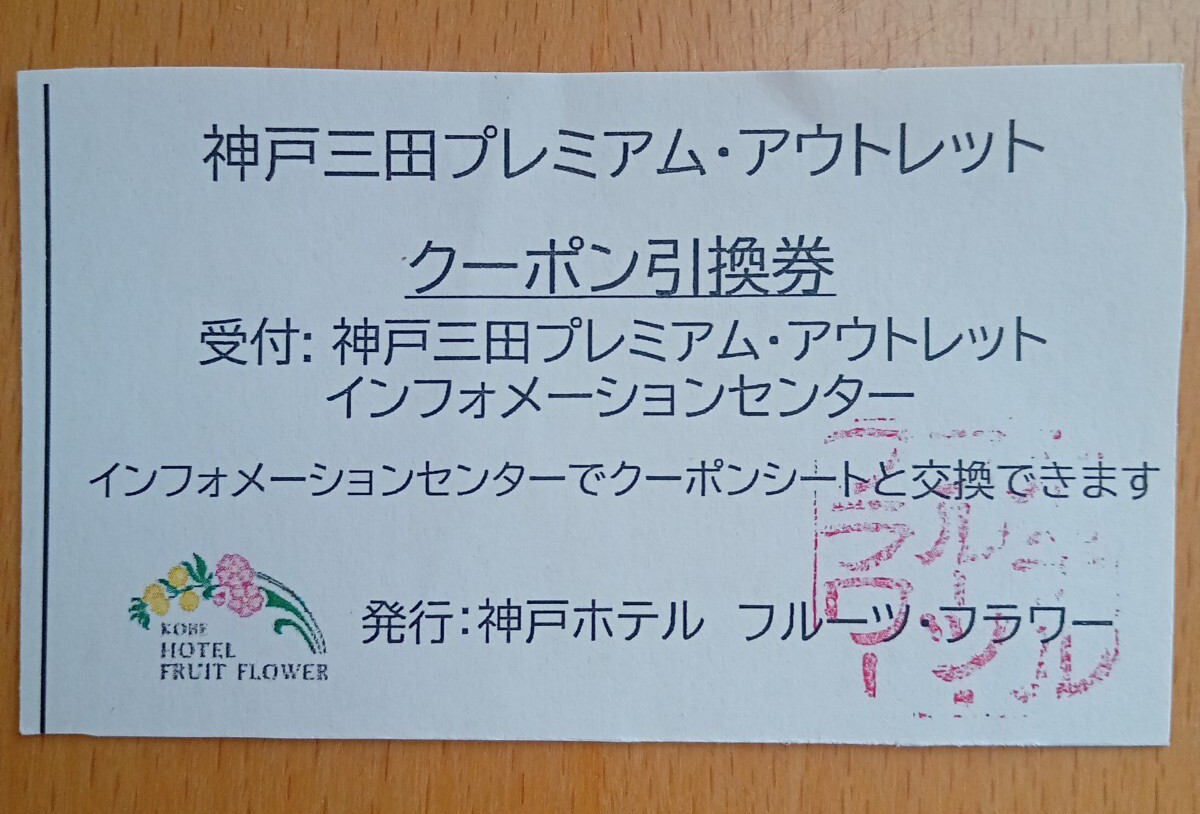 神戸三田プレミアム・アウトレット
クーポン引換券
受付: 神戸三田プレミアム・アウトレット
インフォメーションセンター
インフォメーションセンターでクーポンシートと交換できます
KOBE
HOTEL
FRUIT FLOWER
発行:神戸ホテル フルーツ・フラワー